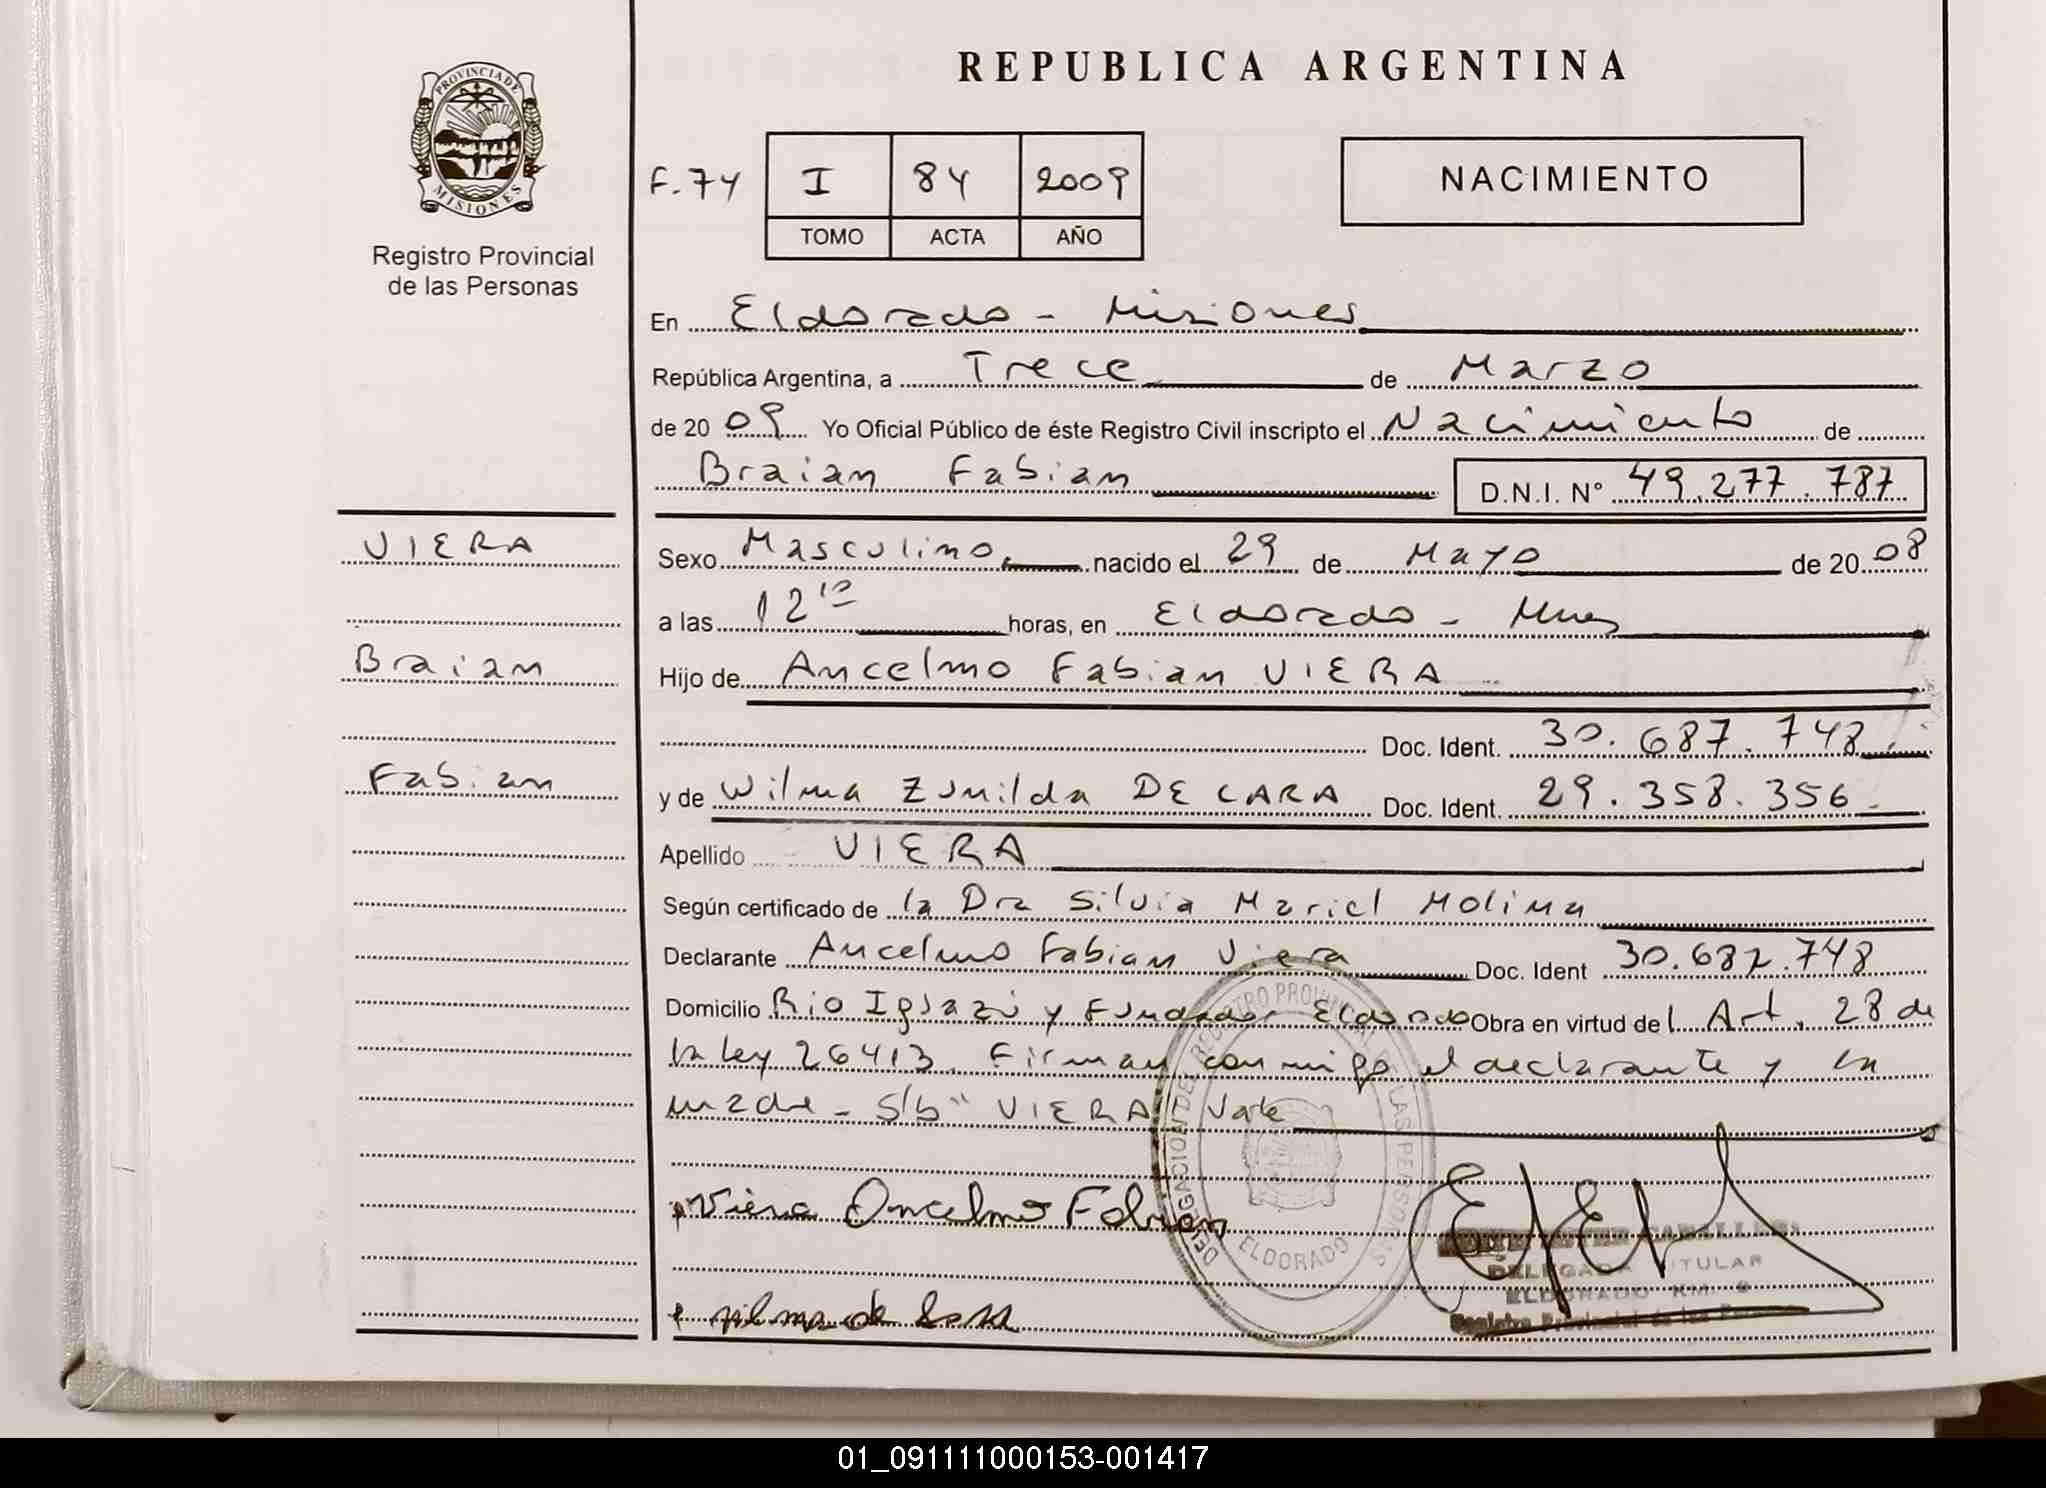 REPUBLICA ARGENTINA
PROVINCIA DE
MISIONES
Registro Provincial
de las Personas
F. 74
I 84 2009
TOMO ACTA AÑO
NACIMIENTO
En Eldorado - Misiones
República Argentina, a Trece de Marzo
de 2009 Yo Oficial Público de éste Registro Civil inscripto el Nacimiento de
Braian Fabian D.N.I. N° 49.277.787
VIERA
Braian
Fabian
Sexo Masculino nacido el 29 de Mayo de 2008
a las 12 10 horas, en Eldorado - Mnes
Hijo de Ancelmo Fabian VIERA
Doc. Ident. 30.687.748.
y de Wilma Zunilda DE LARA Doc. Ident. 29.358.356.
Apellido VIERA
Según certificado de la Dra Silvia Mariel Molina
Declarante Ancelmo Fabian Viera Doc. Ident 30.687.748
Domicilio Rio Iguazú y Fundador Eldorado Obra en virtud del Art. 28 de
la ley 26413. Firman conmigo el declarante y la
madre - S/b "VIERA" Vale
DELEGACION DEL REGISTRO PROVINCIAL DE LAS PERSONAS
ELDORADO
Viera Ancelmo Fabian
DELEGADA TITULAR
ELDORADO KM. 9
Registro Provincial de las Personas
01_091111000153-001417